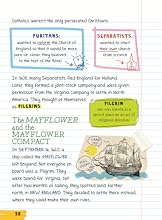 Catholics weren't the only persecuted Christians.
PURITANS:
wanted to reform the Church of
England so that it would be more
pure (or closer, they believed,
to the text of the Bible)
SEPARATISTS
wanted to start
their own church
from scratch
In 1608, many Separatists fled England for Holland.
Later, they formed a joint-stock company and were given
permission from the Virginia Company to settle in North
America. They thought of themselves
as PILGRIMS.
PILGRIM
The MAYFLOWER
and the
MAYFLOWER
COMPACT
On SEPTEMBER 16, 1620, a
ship called the MAYFLOWER
left England. Not everyone on
board was a Pilgrim. They
were bound for Virginia, but
after two months of sailing, they spotted land farther
north in NEW ENGLAND. They decided to settle there instead,
where they could make their own rules.
38